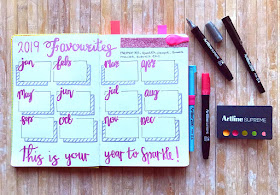 2019 Favourites
jan feb mar apr
may jun jul aug
sep oct nov dec
This is your year to sparkle!
Artline SUPREME